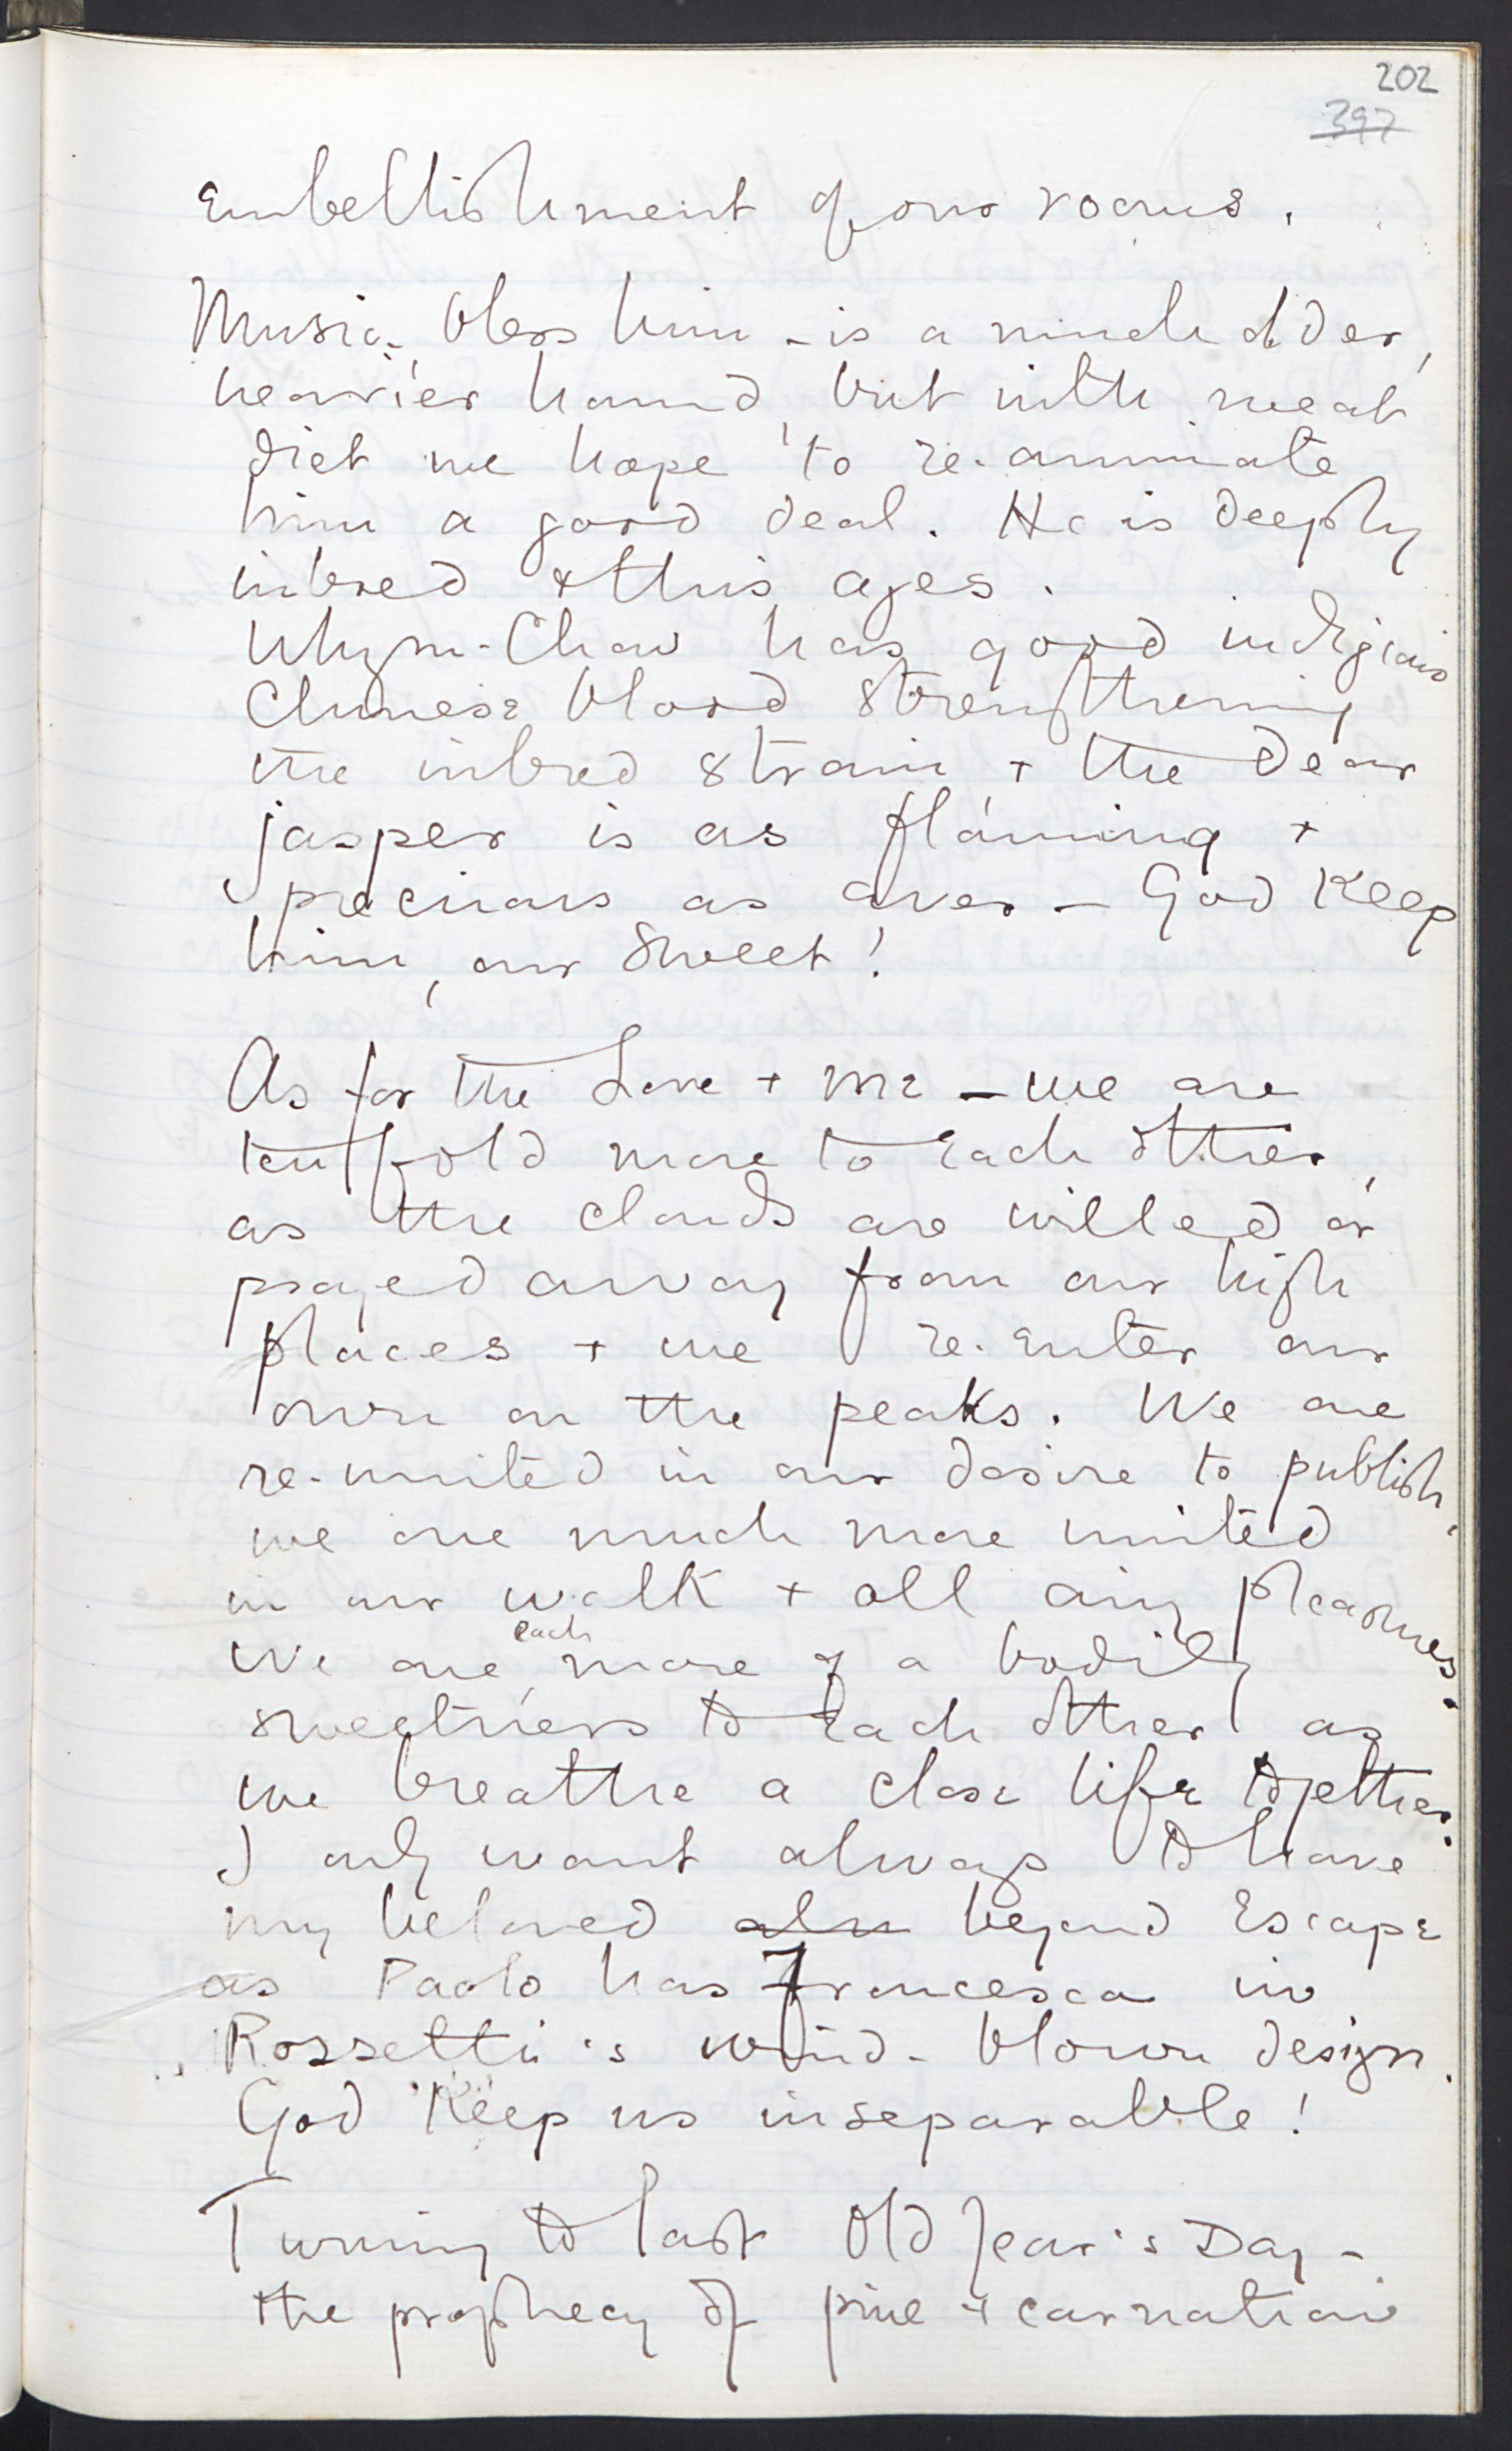 202
397
embellishment of our rooms.
Music, bless him - is a much older,
heavier hound, but with meat
diet we hope to re-animate
him a good deal. He is deeply
inbred & this ages.
Whym-Chow has good
Chinese blood strengthening
the inbred strain + the dear
jasper is as flaming +
precious as ever - God keep
him, our Sweet!
As for the Love + me - we are
tenfold more to each other,
as the clouds are willed or
prayed away from our high
places + we re-enter our
own on the peaks. We are
re-united in our desire to publish,
we are much more united
in our walk + all airy pleasures.
We are each more of a bodily
sweetness to each other as
we breathe a close life together.
I only want always to have
my beloved beyond escape
as Paolo has Francesca in
Rossetti's wind-blown design.
God keep us inseparable!
Turning to last Old Year's Day -
the prophecy of pine + carnation